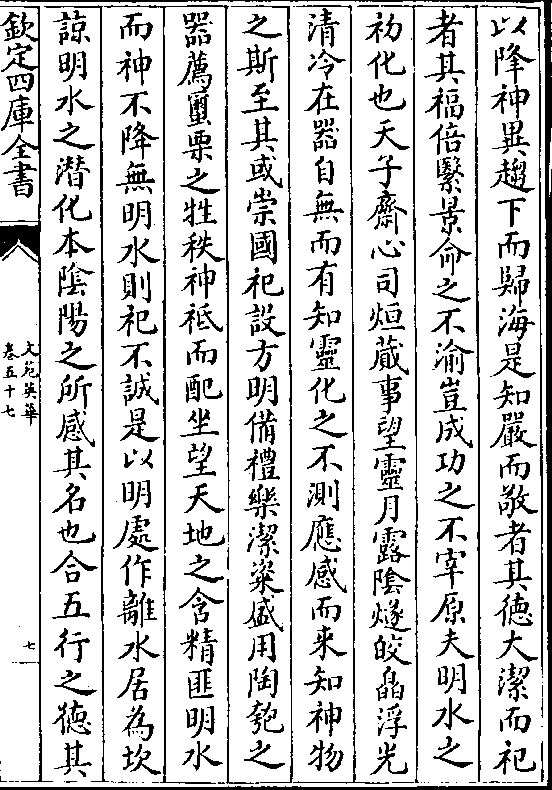 以降神異趨下而歸海是知嚴而敬者其徳大潔而祀
者其福倍繄景命之不渝豈成功之不宰原夫明水之
初化也天子齋心司烜蕆事望靈月露陰燧皎皛浮光
清冷在器自無而有知靈化之不測應感而来知神物
之斯至其或崇國祀設方明備禮樂潔粢盛用陶匏之
器薦蠒栗之牲秩神祗而配坐望天地之含精匪明水
而神不降無明水則祀不誠是以明處作離水居為坎
諒明水之潜化本陰陽之所感其名也合五行之徳其
欽定四庫全書
文苑英華
卷五十七
七